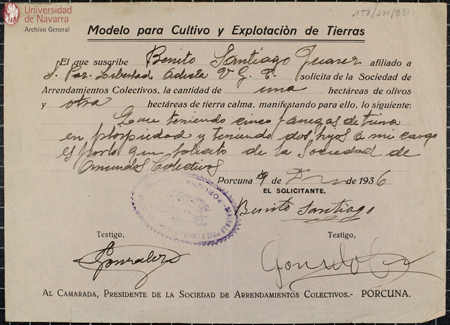 Universidad
de Navarra
Archivo General
Modelo para Cultivo y Explotación de Tierras
El que suscribe Benito Santiago Juarez afiliado a
S. Paz Libertad solicita de la Sociedad de
Arrendamientos Colectivos, la cantidad de una hectáreas de olivos
y otra hectáreas de tierra calma, manifestando para ello, lo siguiente:
Que teniendo cinco fanegas de tierra
en propiedad y teniendo dos hijos a mi cargo
es por lo que solicito de la Sociedad de
Colectivos
Porcuna 9 de 1936
EL SOLICITANTE,
Benito Santiago
Testigo,
Testigo,
Gonzalez
AL CAMARADA, PRESIDENTE DE LA SOCIEDAD DE ARRENDAMIENTOS COLECTIVOS.- PORCUNA.